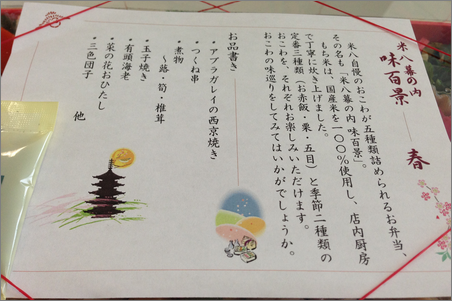 米八幕の内
味百景――春
米八自慢のおこわが五種類詰められるお弁当、
その名も「米八幕の内 味百景」。
もち米は、国産米を一〇〇%使用し、店内厨房
で丁寧に炊き上げました。
定番三種類（お赤飯・栗・五目）と季節二種類の
おこわを、それぞれお楽しみいただけます。
おこわの味巡りをしてみてはいかがでしょうか。
お品書き――
・アブラガレイの西京焼き
・つくね串
・煮物
～蕗・筍・椎茸
・玉子焼き
・有頭海老
・菜の花おひたし
・三色団子 他